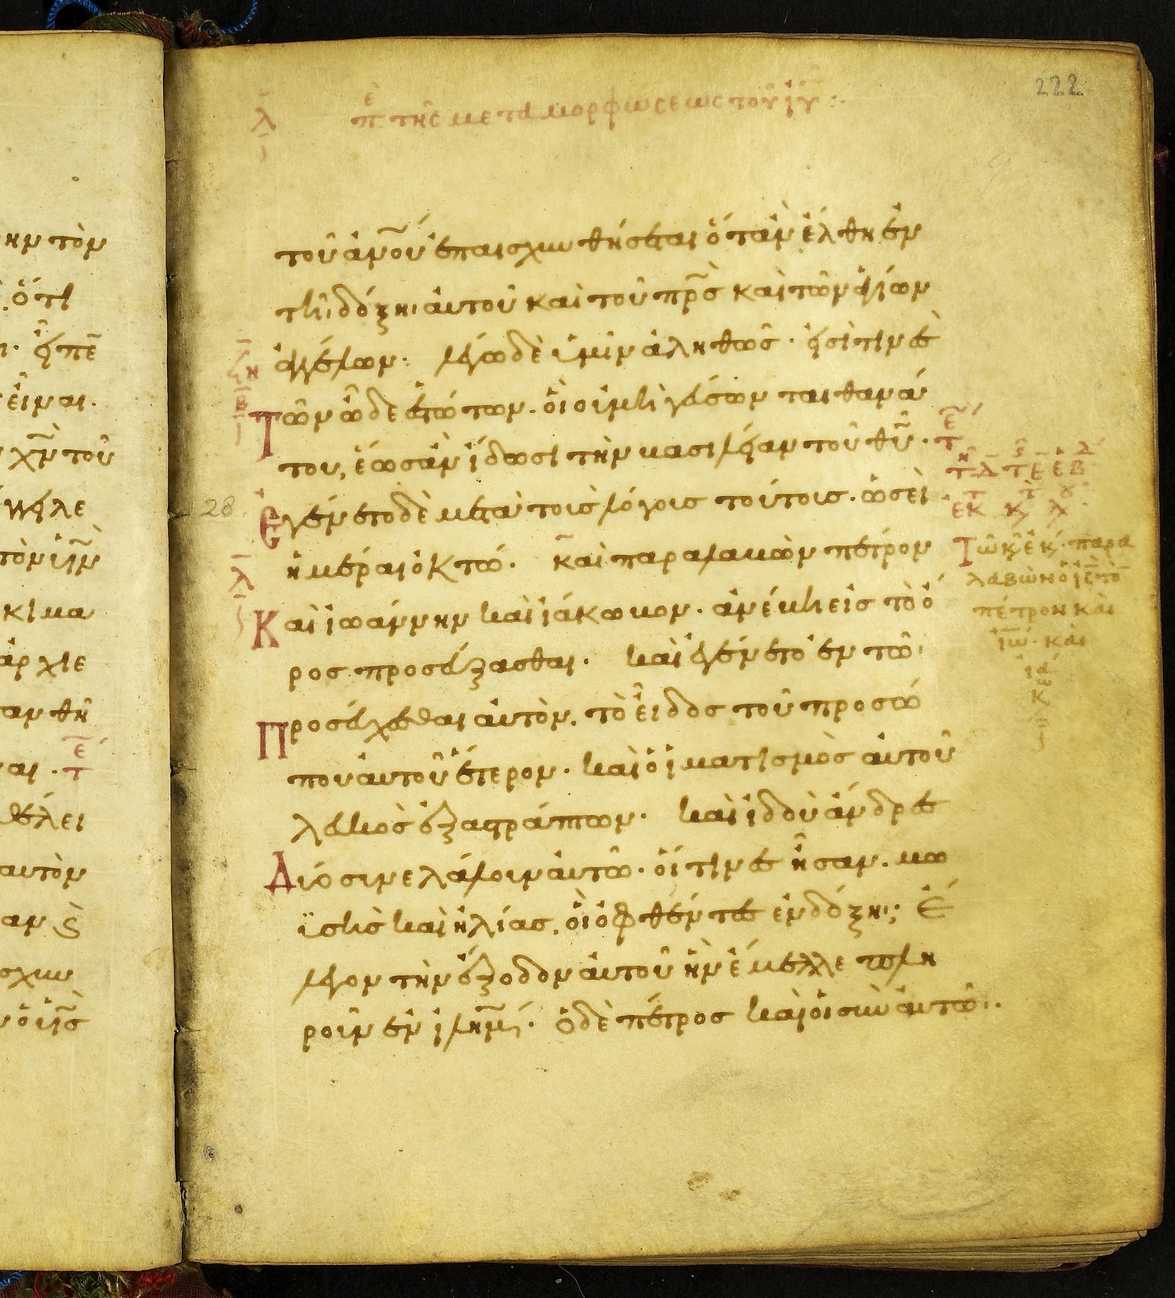 222
λ ῑ πε τῆς μεταμορφώσεως τοῦ ῑῡ :·
τοῦ ἀν̅ο̅υ̅ ἐπαισχυνθήσεται ὅταν ἔλθη ἐν
τῆ δόξη αὐτοῦ καὶ τοῦ π̅ρ̅ς̅ καὶ τῶν ἁγίων
ἀγγέλων· λέγω δὲ ὑμῖν ἀληθῶς· εἰσὶ τινὲς
τῶν ὧδε ἑστώτων· οἳ οὐ μὴ γεύσωνται θανά
του, ἕως ἂν ἴδωσι τὴν βασιλείαν τοῦ θ̅υ̅·
28
Ἐγένετο δὲ μετὰ τοὺς λόγους τούτους· ὡσεὶ
ἡμέραι ὀκτώ· καὶ παραλαβὼν πέτρον
Καὶ ἰωάννην καὶ ἰάκωβον· ἀνέβη εἰς τὸ ὄ
ρος προσεύξασθαι· καὶ ἐγένετο ἐν τῶ
Προσεύχεσθαι αὐτὸν, τὸ εἶδος τοῦ προσώ
που αὐτοῦ ἕτερον· καὶ ὁ ἱματισμὸς αὐτοῦ
λευκὸς ἐξαστράπτων· καὶ ἰδοὺ ἄνδρες
Δύο συνελάλουν αὐτῶ· οἵτινες ἦσαν· μω
ϋσῆς καὶ ἡλίας, οἳ ὀφθέντες ἐν δόξη· ἔ
λεγον τὴν ἔξοδον αὐτοῦ ἣν ἔμελλε πλη
ροῦν ἐν ἰ̅λ̅η̅μ̅· ὁ δὲ πέτρος καὶ οἱ σὺν αὐτῶ·
Τῶ κ̅ ἐκ̅· παρα
λαβὼν ὁ ι̅ς̅ τὸ
πέτρον καὶ
ἰω̅· καὶ
ἰά
κω